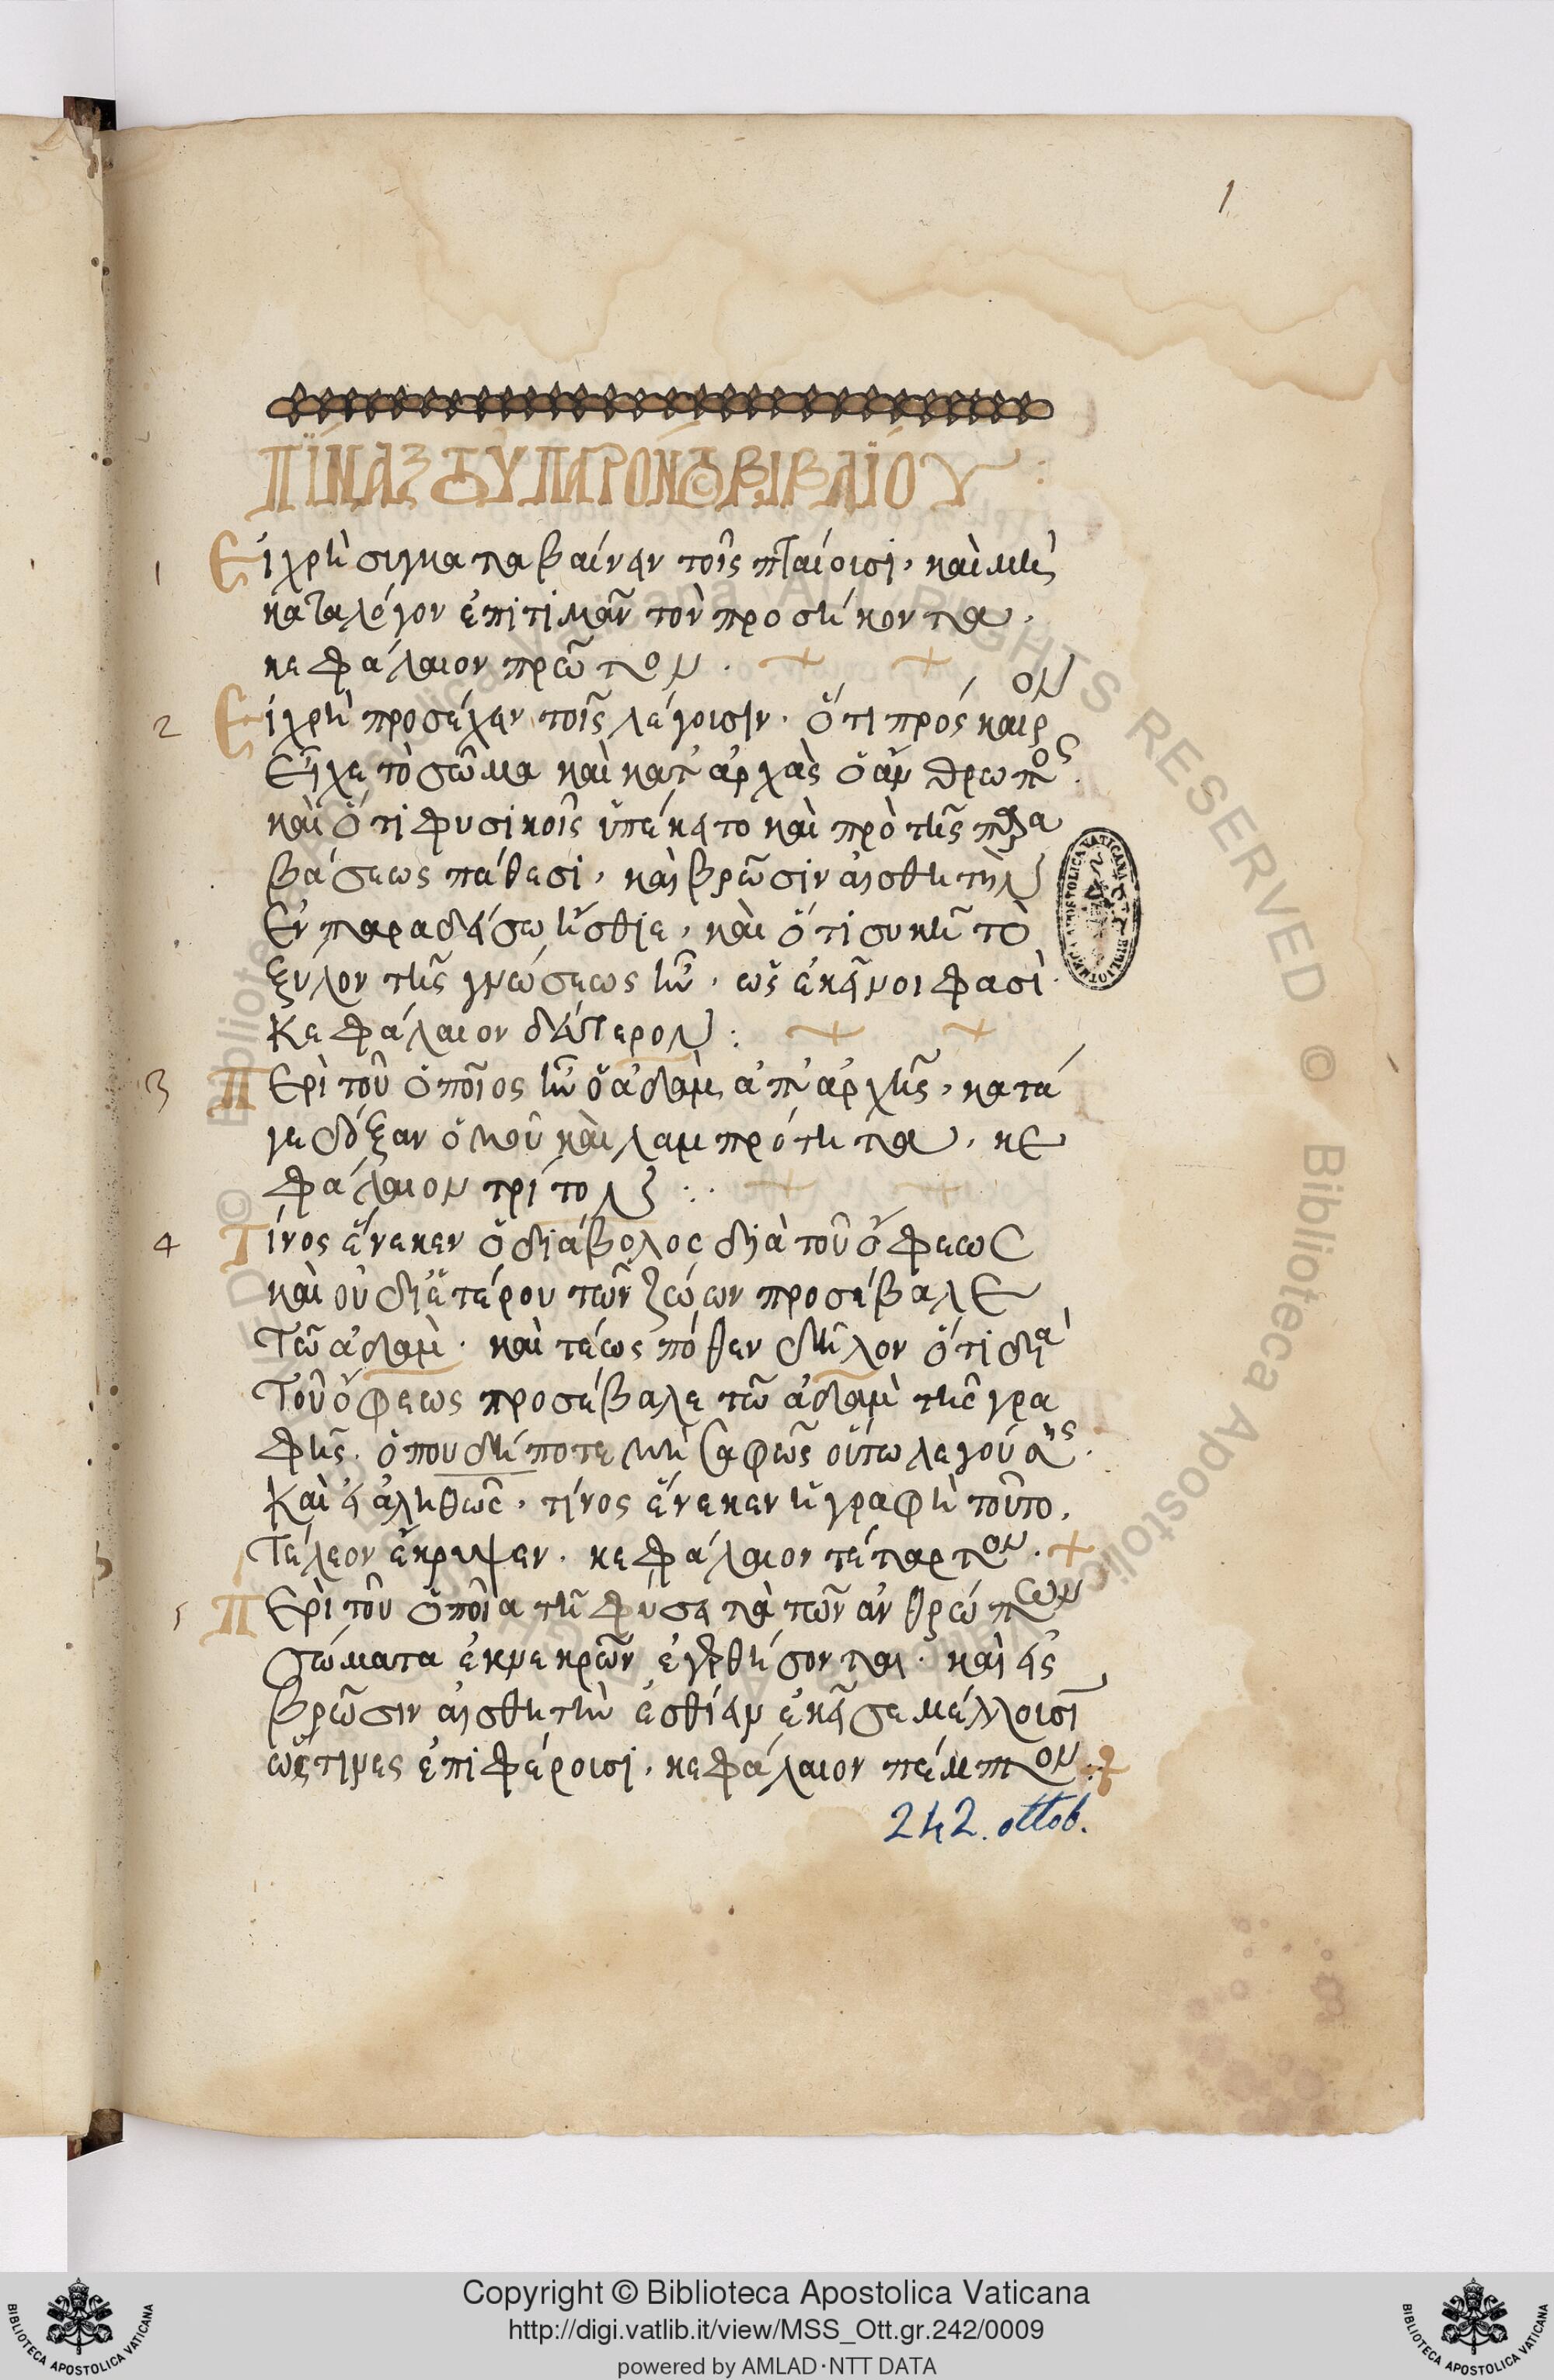 1
ΠΊΝΑΞ ΤΟΥ ΠΑΡΌΝΤΟΣ ΒΙΒΛΊΟΥ :
1 Εἰ χρὴ συγκαταβαίνειν τοῖς πταίουσι, καὶ μὴ
καταλέγον ἐπιτιμᾶν τὸν προσήκοντα.
κεφάλαιον πρῶτον.
2 Εἰ χρὴ προσέχειν τοῖς λέγουσιν. ὅτι πρόσκαιρον
εἶχε τὸ σῶμα καὶ κατ' ἀρχὰς ὁ ἄνθρωπος.
καὶ ὅτι φυσικοῖς ὑπέκειτο καὶ πρὸ τῆς παρα
βάσεως πάθεσι, καὶ βρῶσιν αἰσθητὴν
ἐν παραδείσω ἤσθιε, καὶ ὅτι συκῆ τὸ
ξύλον τῆς γνώσεως ἦν. ὡς ἐκεῖνοι φασὶ.
Κεφάλαιον δεύτερον :
3 Περὶ τοῦ ὁποῖος ἦν ὁ ἀδὰμ ἀπ' ἀρχῆς, κατά
γε δόξαν ὁμοῦ καὶ λαμπρότητα. κε
φάλαιον τρίτον :.
4 Τίνος ἕνεκεν ὁ διάβολος διὰ τοῦ ὄφεως
καὶ οὐ δι' ἑτέρου τῶν ζώων προσέβαλε
τῶ ἀδὰμ. καὶ τέως πόθεν δῆλον ὅτι διὰ
τοῦ ὄφεως προσέβαλε τῶ ἀδὰμ τῆς γρα
φῆς. ὁπουδήποτε μὴ σαφῶς οὕτω λεγούσης.
Καὶ εἰ ἀληθῶς, τίνος ἕνεκεν ἡ γραφὴ τοῦτο,
τέλεον ἔκρυψεν. κεφάλαιον τέταρτον.
5 Περὶ τοῦ ὁποῖα τῆ φύσει τὰ τῶν ἀνθρώπων
σώματα ἐκ νεκρῶν ἐγερθήσονται. καὶ εἰ
βρῶσιν αἰσθητὴν ἐσθίειν ἐκεῖσε μέλλουσι
ὥς τινες ἐπιφέρουσι, κεφάλαιον πέμπτον.
242. ottob.
Copyright © Biblioteca Apostolica Vaticana
http://digi.vatlib.it/view/MSS_Ott.gr.242/0009
powered by AMLAD·NTT DATA
BIBLIOTECA APOSTOLICA VATICANA
BIBLIOTECA APOSTOLICA VATICANA